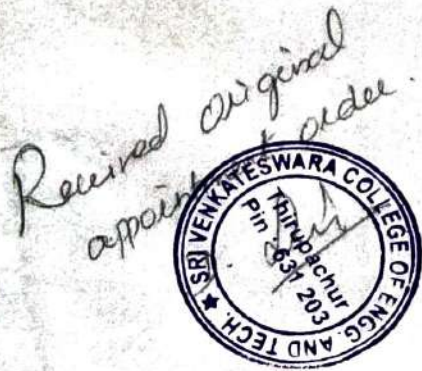 Received original
appointment order.
★ SRI VENKATESWARA COLLEGE OF ENGG. AND TECH.
Thirupachur
Pin 631 203